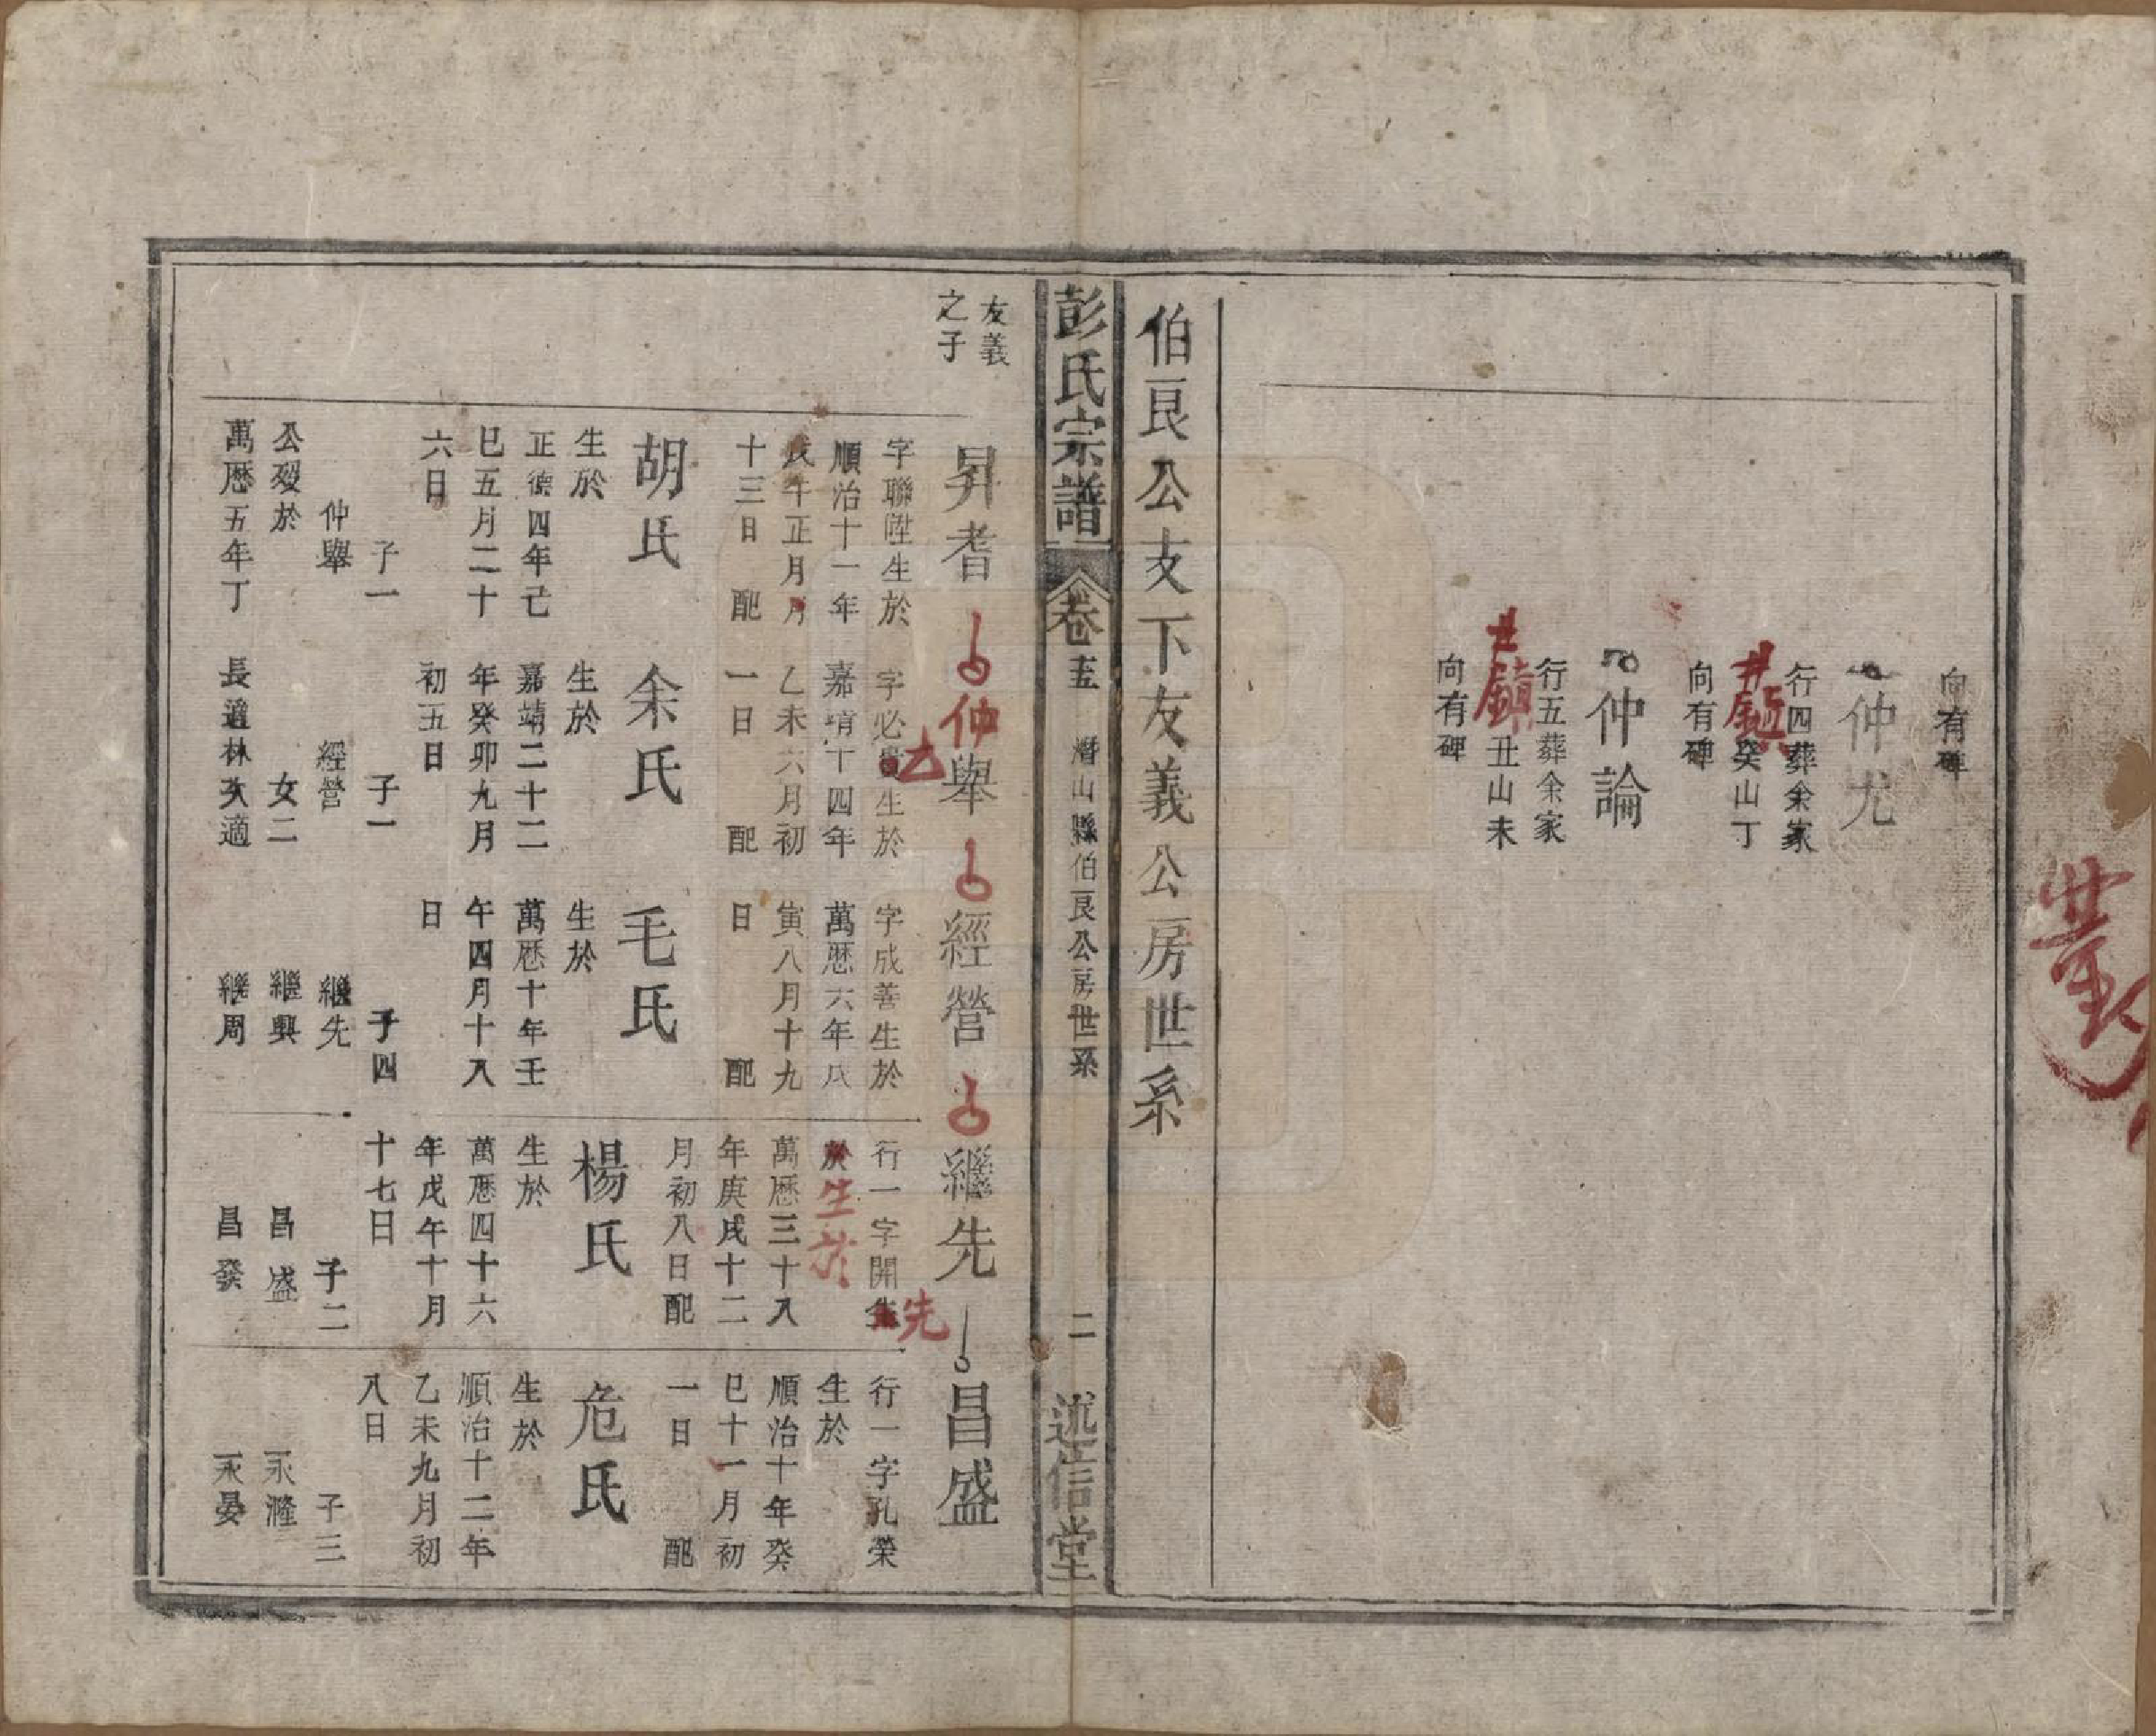 向有碑
仲尤
行四葬余家
癸山丁
向有碑
仲論
行五葬余家
丑山未
向有碑
伯艮公支下友義公房世系
彭氏宗譜
卷五
潛山縣伯艮公房世系
二
述信堂
友義
之子
昇耆
字聯陞生於
順治十一年
戊午正月
十三日 配
胡氏
生於
正德四年己
巳五月二十
六日
子一
仲舉
公歿於
萬曆五年丁
仲舉
字必貴生於
嘉靖十四年
乙未六月初
一日 配
余氏
生於
嘉靖二十二
年癸卯九月
初五日
子一
經營
女二
長適林次適
經營
字成善生於
萬曆六年戊
寅八月十九
日 配
毛氏
生於
萬曆十年壬
午四月十八
日
子四
繼先
繼興
繼周
繼先
行一字開先
生於
萬曆三十八
年庚戌十二
月初八日配
楊氏
生於
萬曆四十六
年戊午十月
十七日
子二
昌盛
昌發
昌盛
行一字孔榮
生於
順治十年癸
巳十一月初
一日 配
危氏
生於
順治十二年
乙未九月初
八日
子三
永隆
永晏